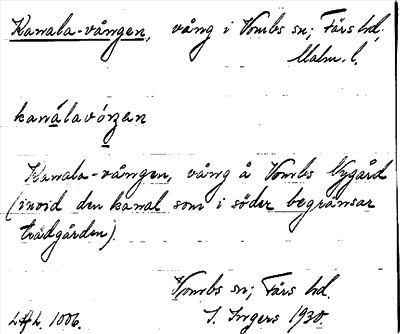 Kanala-vången, vång i Vombs sn; Färs hd,
Malm. l.
kanálavóŋen
Kanala-vången, vång å Vombs Nygård
(invid den kanal som i söder begränsar
trädgården).
Vombs sn; Färs hd.
LAL 1006. I. Ingers 1930.